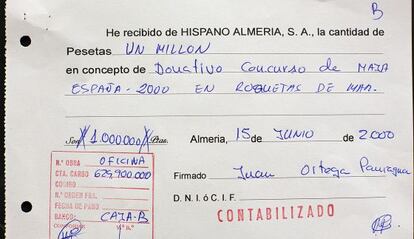 B
He recibido de HISPANO ALMERIA, S. A., la cantidad de
Pesetas UN MILLON
en concepto de Donativo Concurso de MAJA
ESPAÑA-2000 EN ROQUETAS DE MAR.
Son 1.000.000 Ptas. Almería, 15 de JUNIO de 2.000
N.º OBRA OFICINA
CTA. CARGO 629.900.000
CODIGO
N.º ORDEN FRA.
FECHA DE PAGO
BANCO: CAJA-B
Firmado Juan Ortega Paniagua
D. N. I. ó C. I. F.
CONTABILIZADO